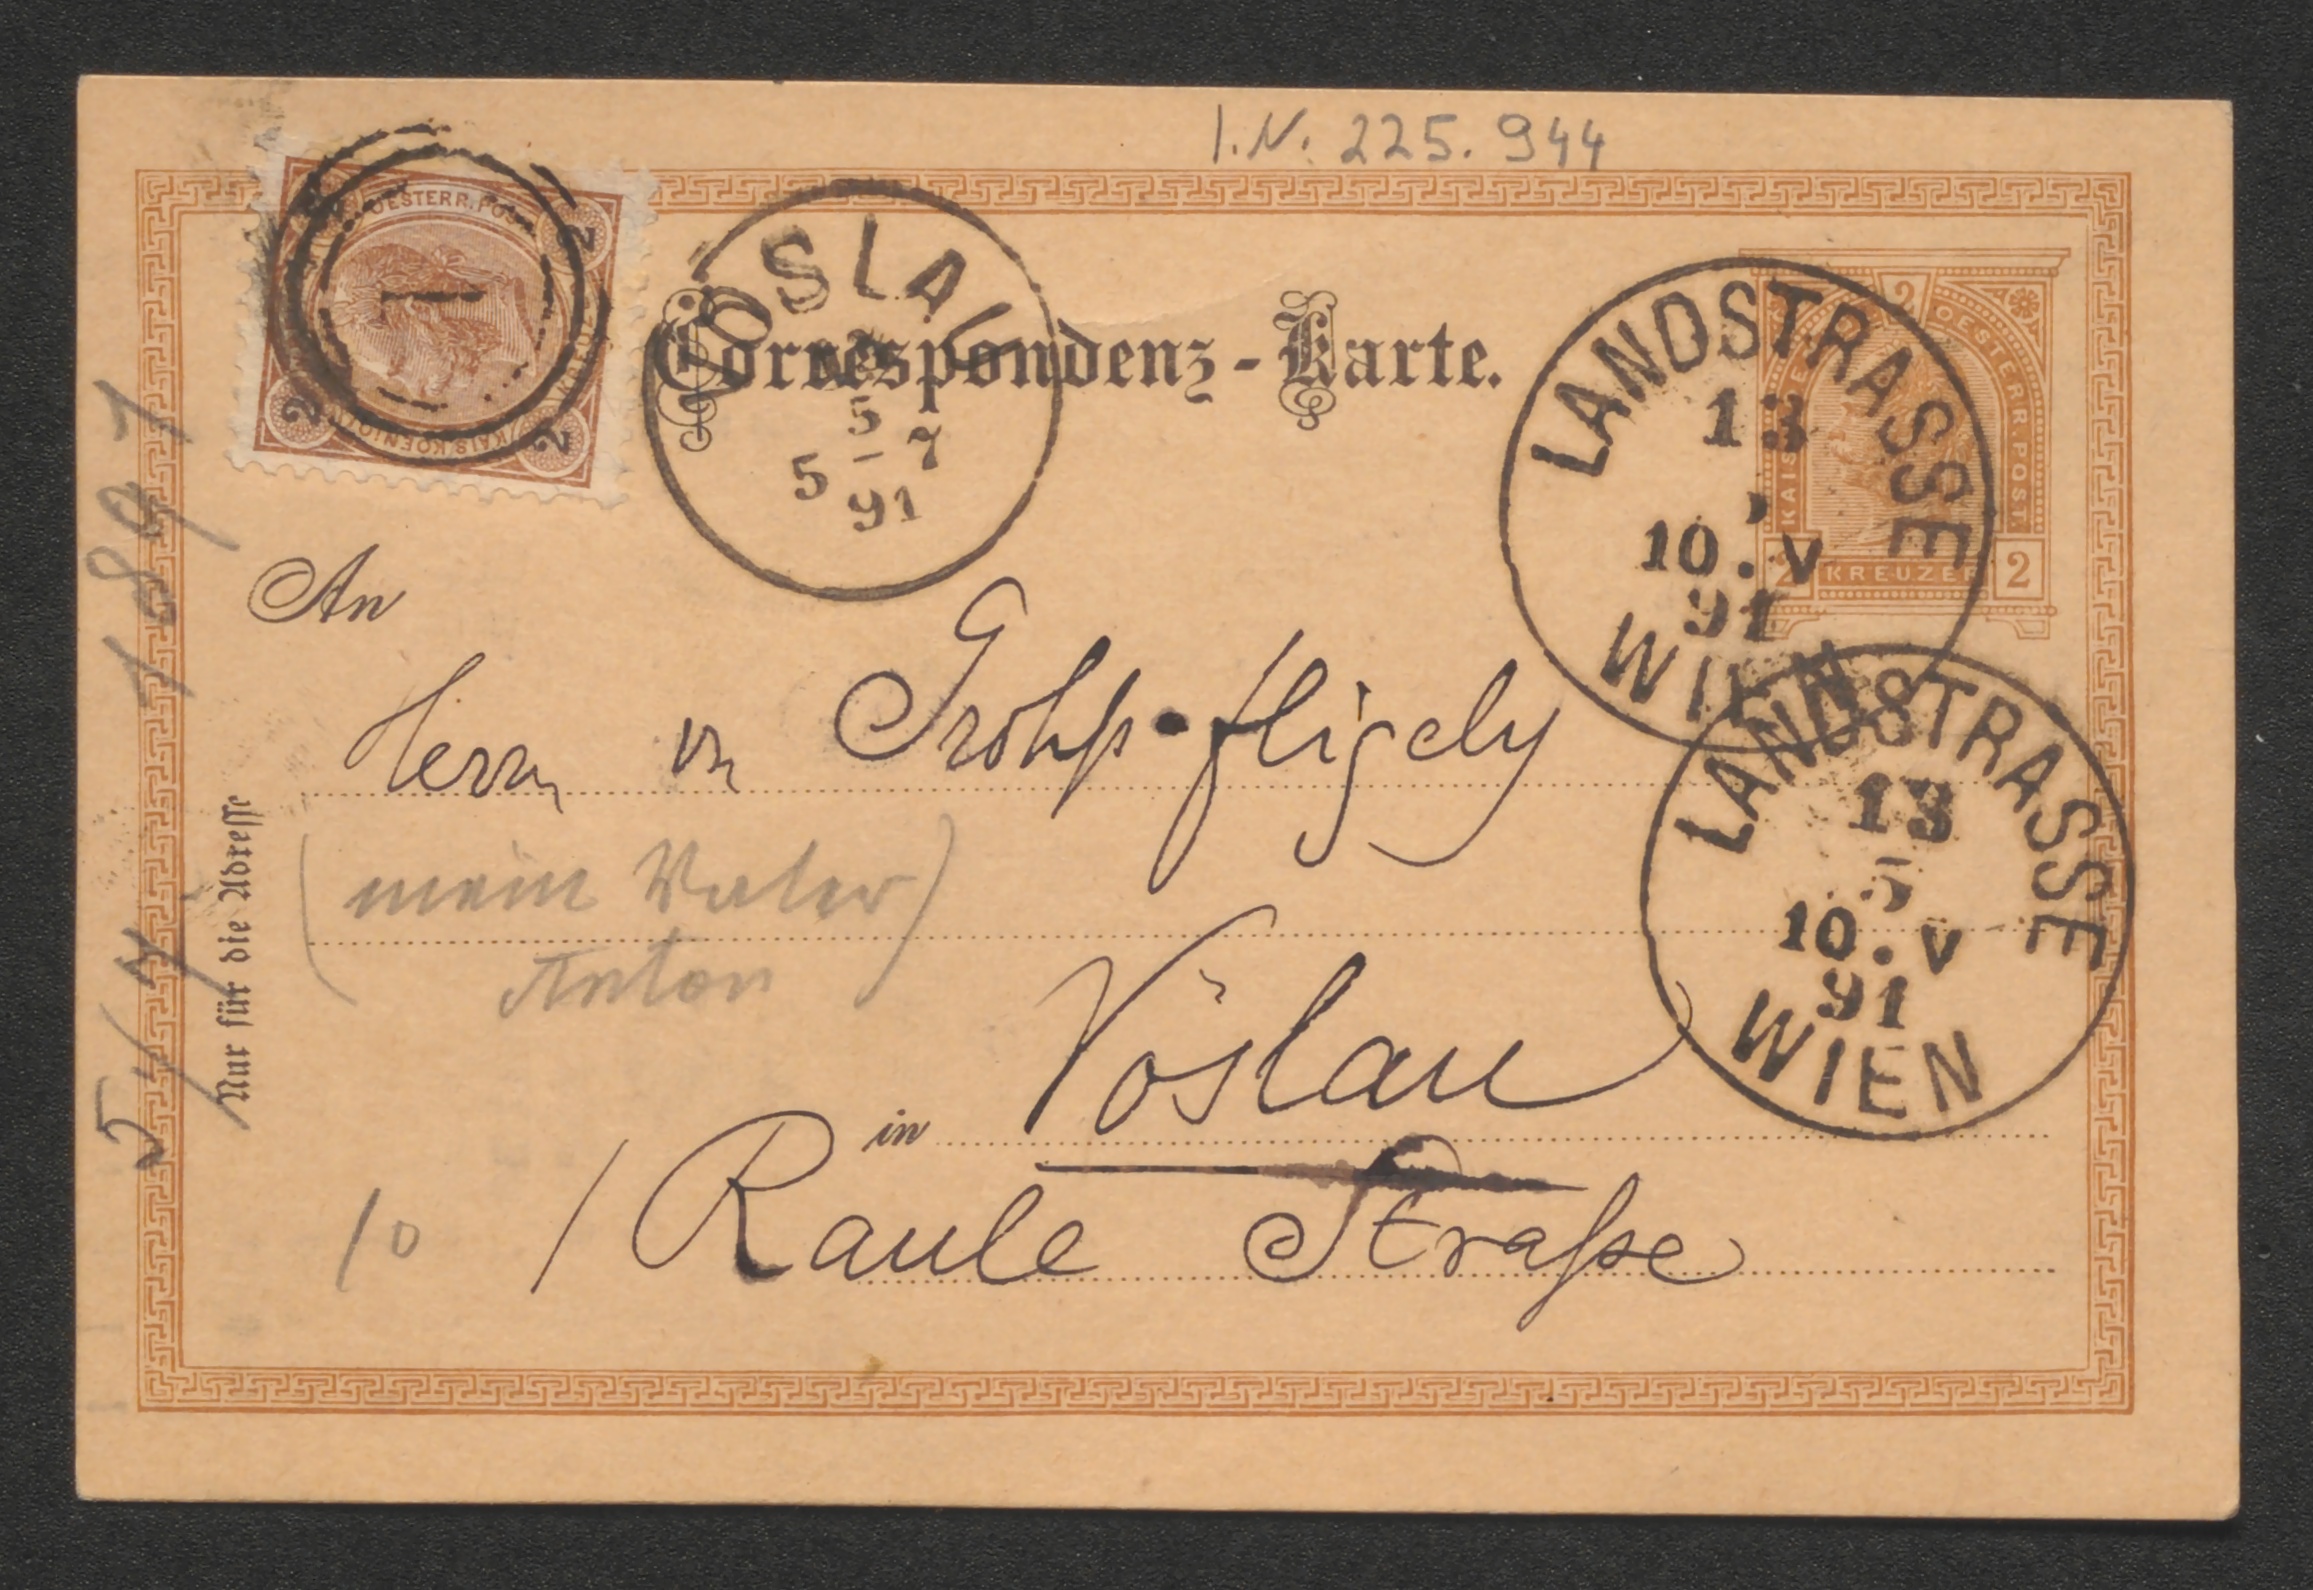 I.N. 225.944
OESTERR. POST
2 2
2 2
KAIS. KOENIGL.
1
VÖSLAU
5
5 – 7
91
Correspondenz-Karte.
2
KAIS. OESTERR. POST.
2 KREUZER 2
LANDSTRASSE
13
10 . V
91
WIEN
LANDSTRASSE
13
5
10 . V
91
WIEN
1897
5/7
An
Herrn vn Gröhß-fligely
(mein Vater)
Anton
Nur für die Adresse
in Vöslau
10 / Raule Straße